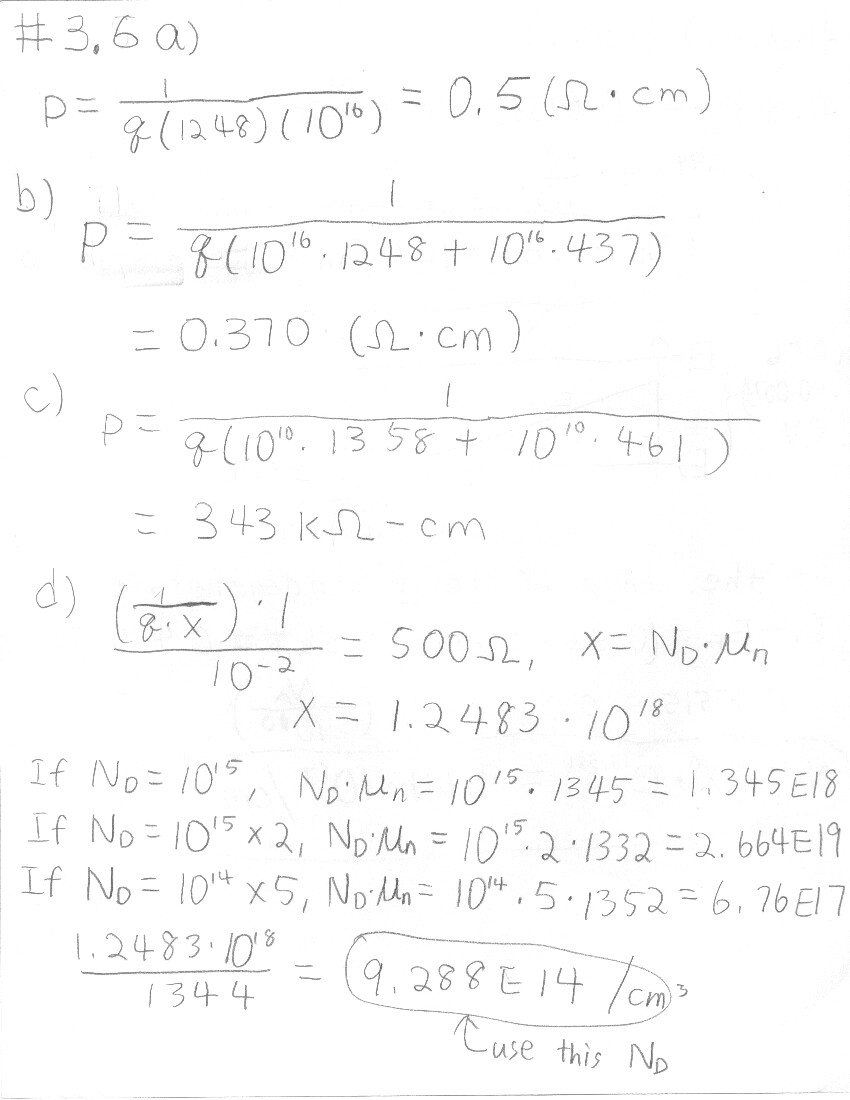 #3.6 a)
ρ = 1 / q(1248)(10^16) = 0.5 (Ω·cm)
b) ρ = 1 / q(10^16 · 1248 + 10^16 · 437)
= 0.370 (Ω·cm)
c) ρ = 1 / q(10^10 · 1358 + 10^10 · 461)
= 343 kΩ-cm
d) (1 / q·x) · 1 / 10^-2 = 500Ω, x = N_D·μ_n
x = 1.2483 · 10^18
If N_D = 10^15, N_D·μ_n = 10^15 · 1345 = 1.345E18
If N_D = 10^15 x 2, N_D·μ_n = 10^15 · 2 · 1332 = 2.664E19
If N_D = 10^14 x 5, N_D·μ_n = 10^14 · 5 · 1352 = 6.76E17
1.2483 · 10^18 / 1344 = 9.288E14 /cm^3
↑ use this N_D